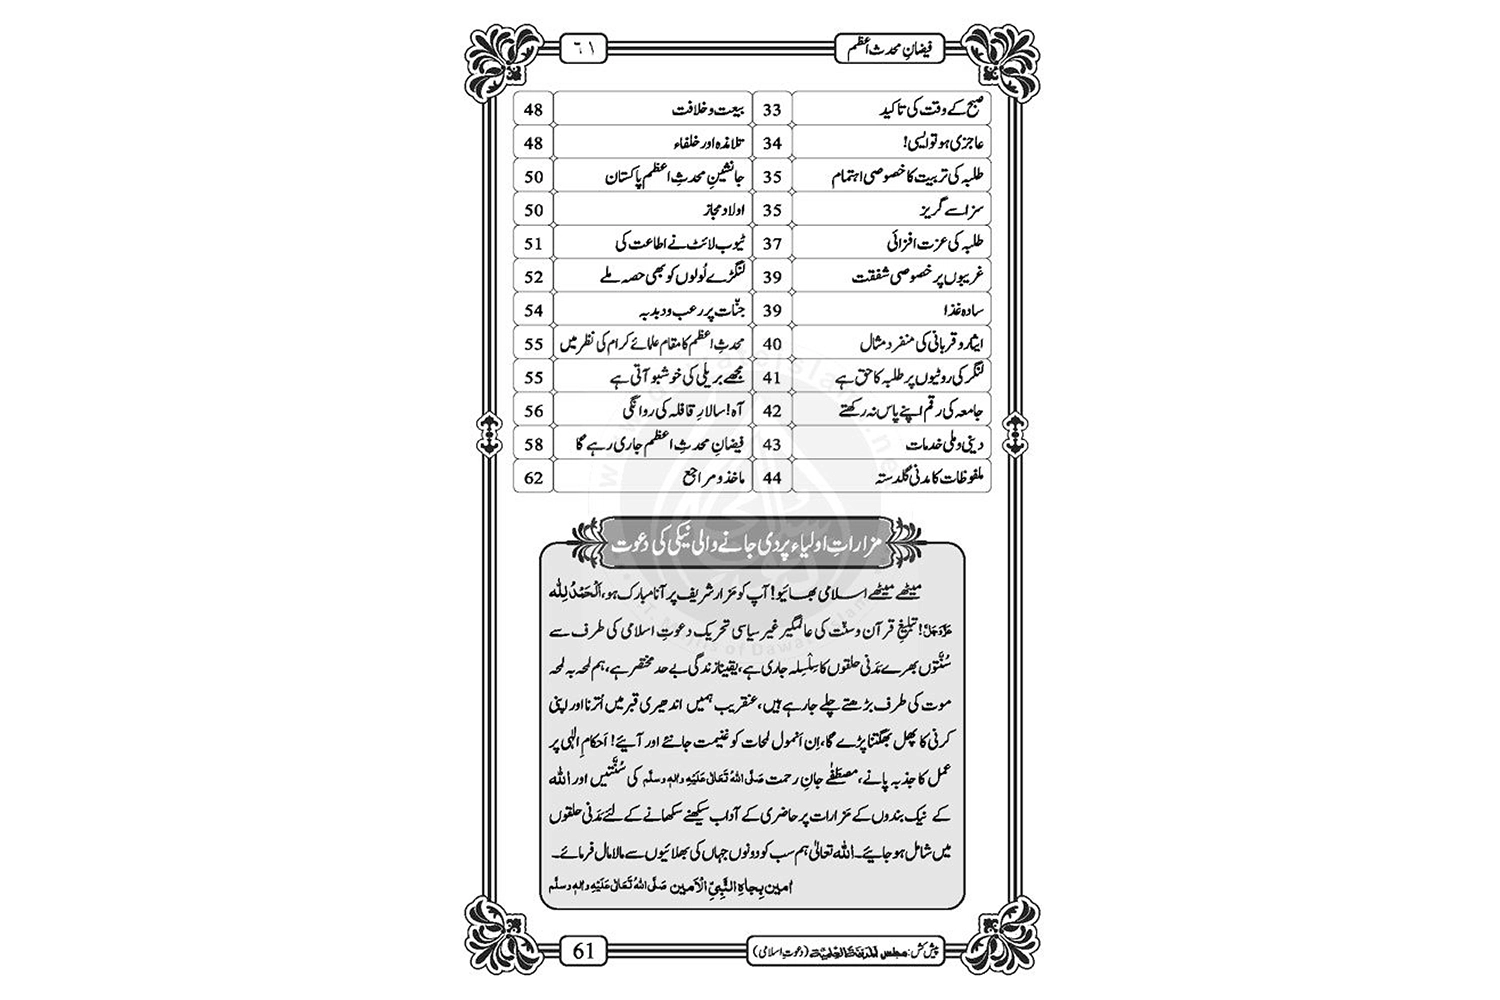 فیضانِ محدث اعظم
٦١
صبح کے وقت کی تاکید 33 بیعت و خلافت 48
عاجزی ہو تو ایسی! 34 تلامذہ اور خلفاء 48
طلبہ کی تربیت کا خصوصی اہتمام 35 جانشینِ محدثِ اعظم پاکستان 50
سزا سے گریز 35 اولادِ مجاز 50
طلبہ کی عزت افزائی 37 ٹیوب لائٹ نے اطاعت کی 51
غریبوں پر خصوصی شفقت 39 لنگڑے لُولوں کو بھی حصہ ملے 52
سادہ غذا 39 جنّات پر رعب و دبدبہ 54
ایثار و قربانی کی منفرد مثال 40 محدثِ اعظم کا مقام علمائے کرام کی نظر میں 55
لنگر کی روٹیوں پر طلبہ کا حق ہے 41 مجھے بریلی کی خوشبو آتی ہے 55
جامعہ کی رقم اپنے پاس نہ رکھتے 42 آہ! سالارِ قافلہ کی روانگی 56
دینی و ملی خدمات 43 فیضانِ محدثِ اعظم جاری رہے گا 58
ملفوظات کا مدنی گلدستہ 44 ماخذ و مراجع 62
مزاراتِ اولیاء پر دی جانے والی نیکی کی دعوت
میٹھے میٹھے اسلامی بھائیو! آپ کو مَزار شریف پر آنا مبارک ہو، اَلْحَمْدُ لِلّٰہ
عَزَّوَجَلَّ! تبلیغِ قرآن و سنّت کی عالمگیر غیر سیاسی تحریک دعوتِ اسلامی کی طرف سے
سُنَّتوں بھرے مَدَنی حلقوں کا سِلْسِلہ جاری ہے، یقینا زندگی بے حد مختصر ہے، ہم لمحہ بہ لمحہ
موت کی طرف بڑھتے چلے جارہے ہیں، عنقریب ہمیں اندھیری قبر میں اُترنا اور اپنی
کرنی کا پھل بھگتنا پڑے گا، اِن اَنمول لمحات کو غنیمت جانئے اور آیئے! اَحکامِ الٰہی پر
عمل کا جذبہ پانے، مصطَفٰے جانِ رحمت صَلَّی اللہُ تَعَالٰی عَلَیْہِ واٰلہٖ وسلَّم کی سُنَّتیں اور اللہ
کے نیک بندوں کے مَزارات پر حاضری کے آداب سیکھنے سکھانے کے لئے مَدَنی حلقوں
میں شامل ہو جایئے۔ اللہ تعالٰی ہم سب کو دونوں جہاں کی بھلائیوں سے مالا مال فرمائے۔
اٰمین بِجاہِ النَّبِیِّ الْاَمین صَلَّی اللہُ تَعَالٰی عَلَیْہِ واٰلہٖ وسلَّم
پیش کش: مجلس المدینۃ العلمیۃ (دعوتِ اسلامی)
61